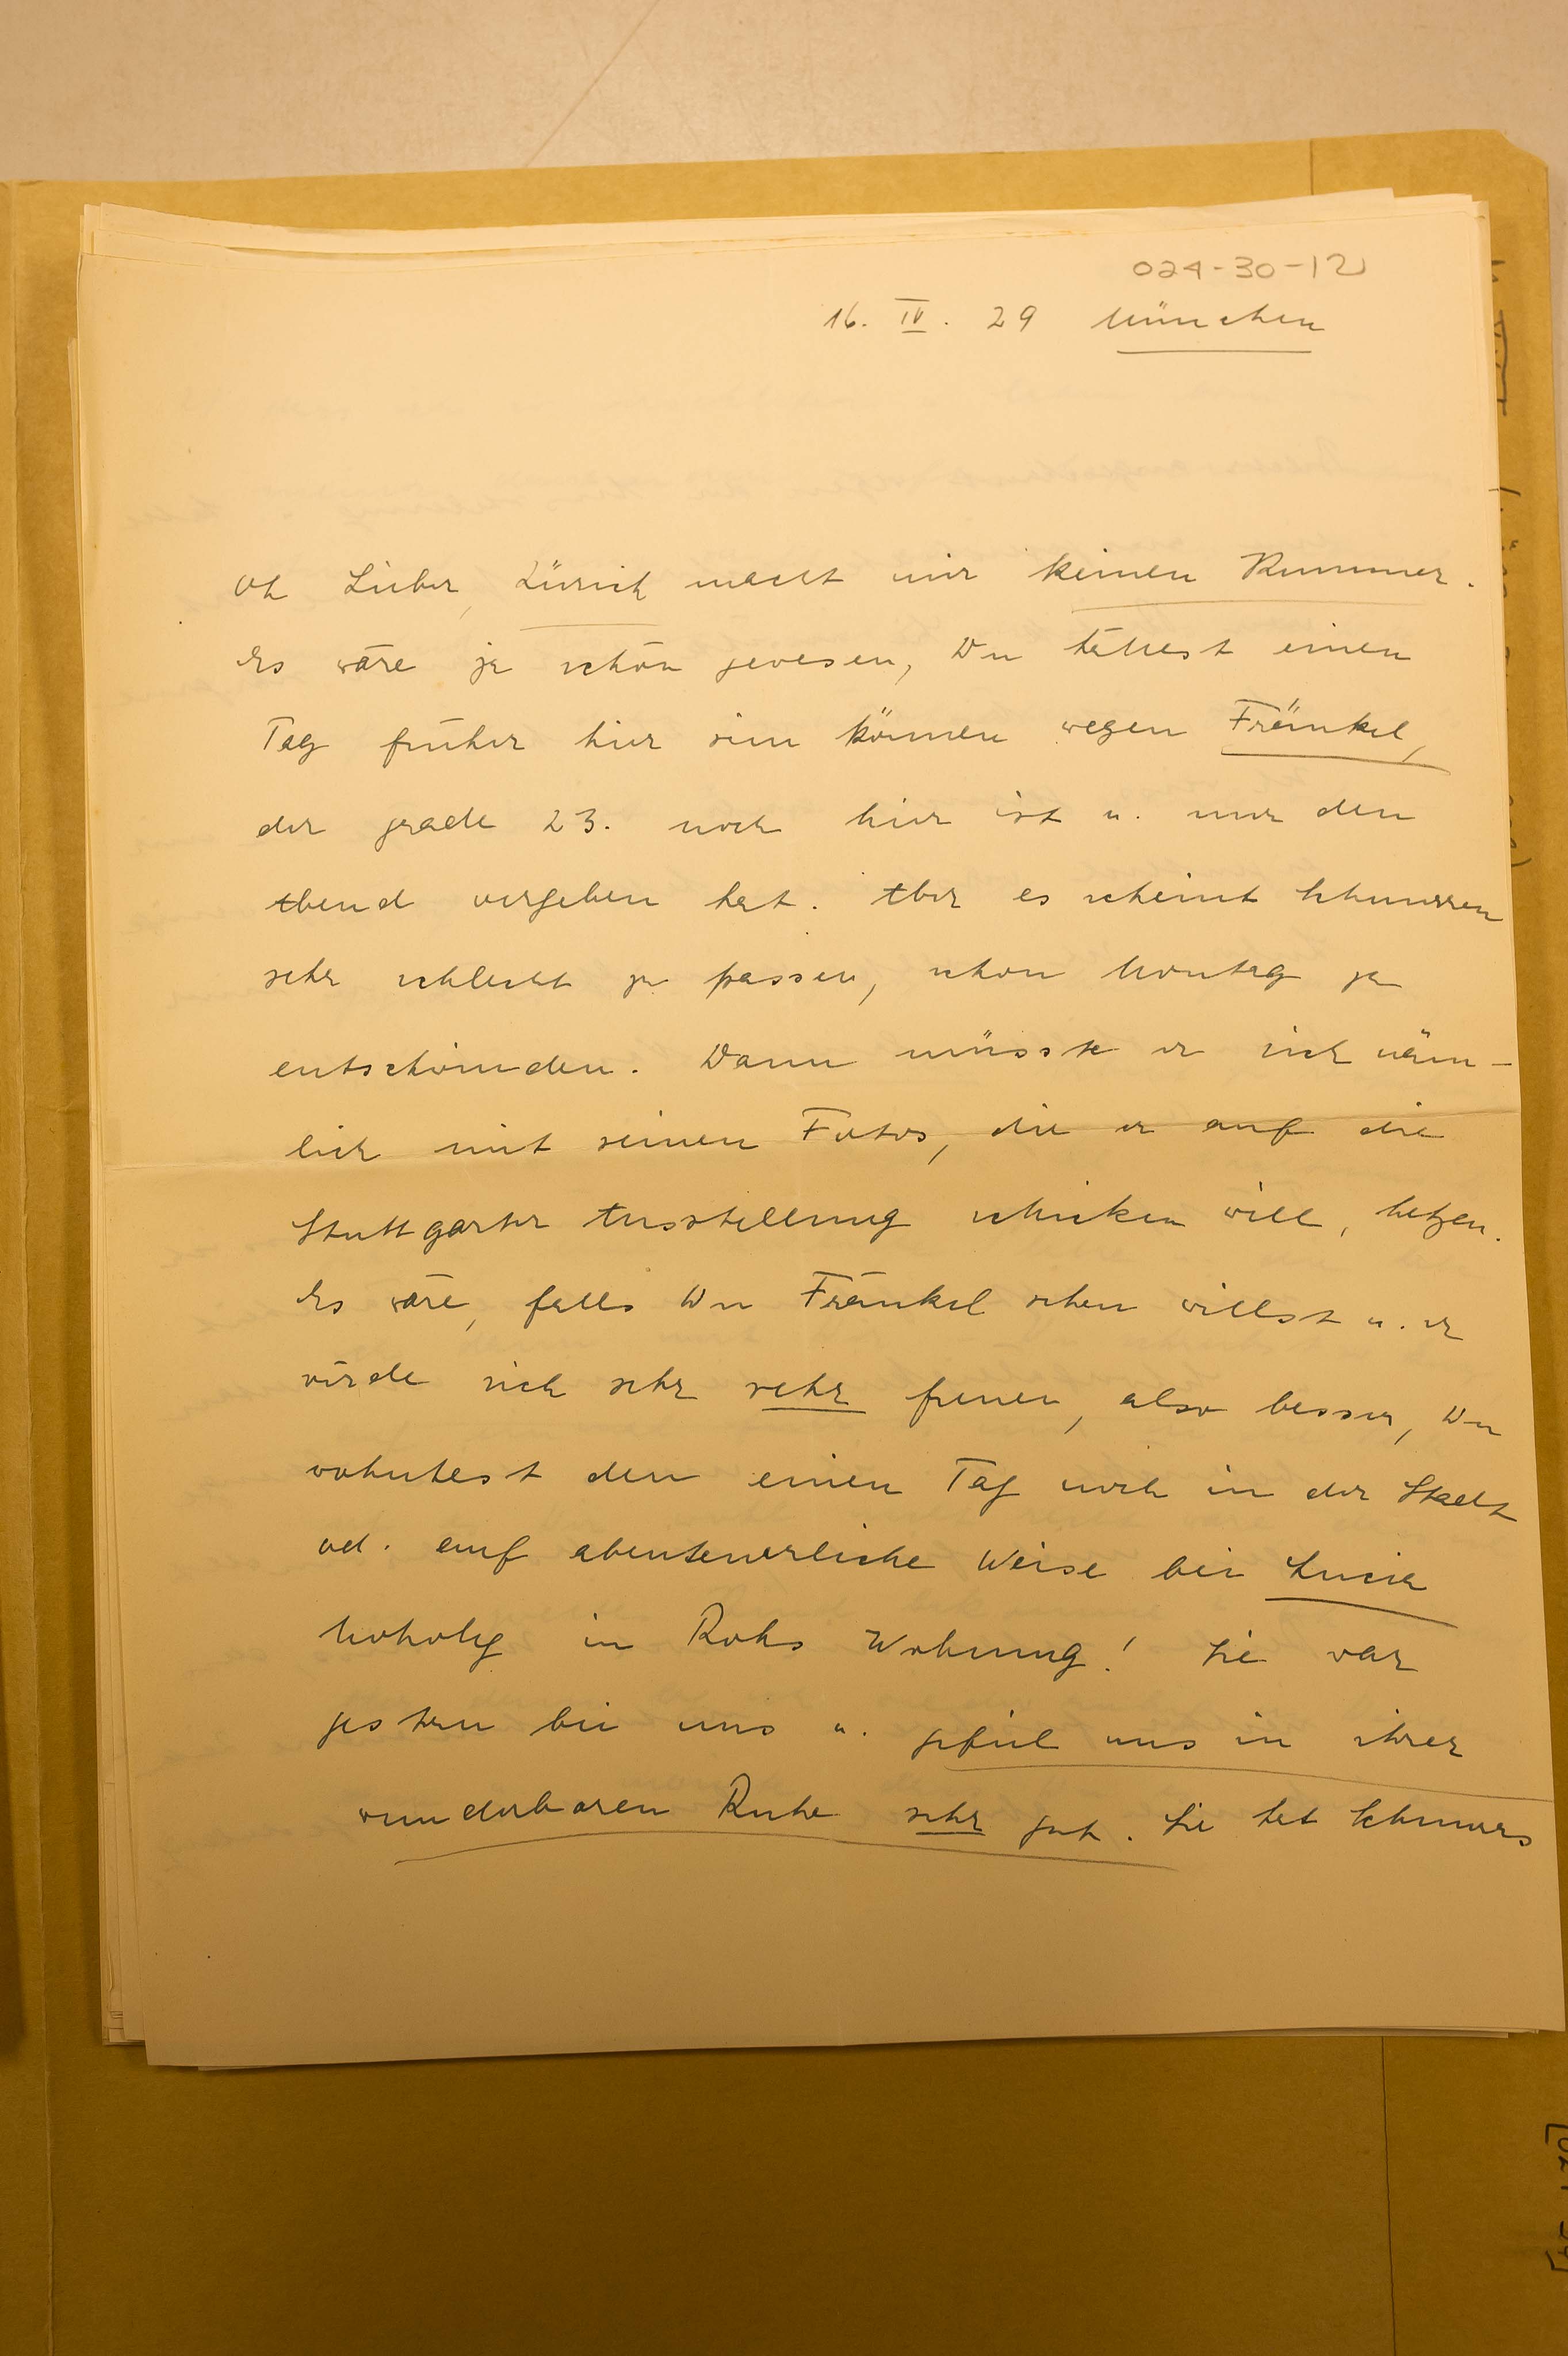 024-30-12
16. IV. 29 München
Oh Lieber, Zürich macht mir keinen Kummer.
Es wäre ja schön gewesen, Du hättest einen
Tag früher hier sein können wegen Fränkel,
der grade 23. noch hier ist u. nur den
Abend vergeben hat. Aber es scheint Schnurren
sehr schlecht zu passen, schon Montag zu
entschwinden. Dann müsste er sich näm-
lich mit seinen Fotos, die er auf die
Stuttgarter Ausstellung schicken will, hetzen.
Es wäre, falls Du Fränkel sehen willst u. er
würde sich sehr sehr freuen, also besser, Du
wohntest den einen Tag noch in der Stadt
od. auf abenteuerliche Weise bei Lucia
Moholy in Rohs Wohnung! Sie war
gestern bei uns u. gefiel uns in ihrer
wunderbaren Ruhe sehr gut. Sie hat Schnurrs